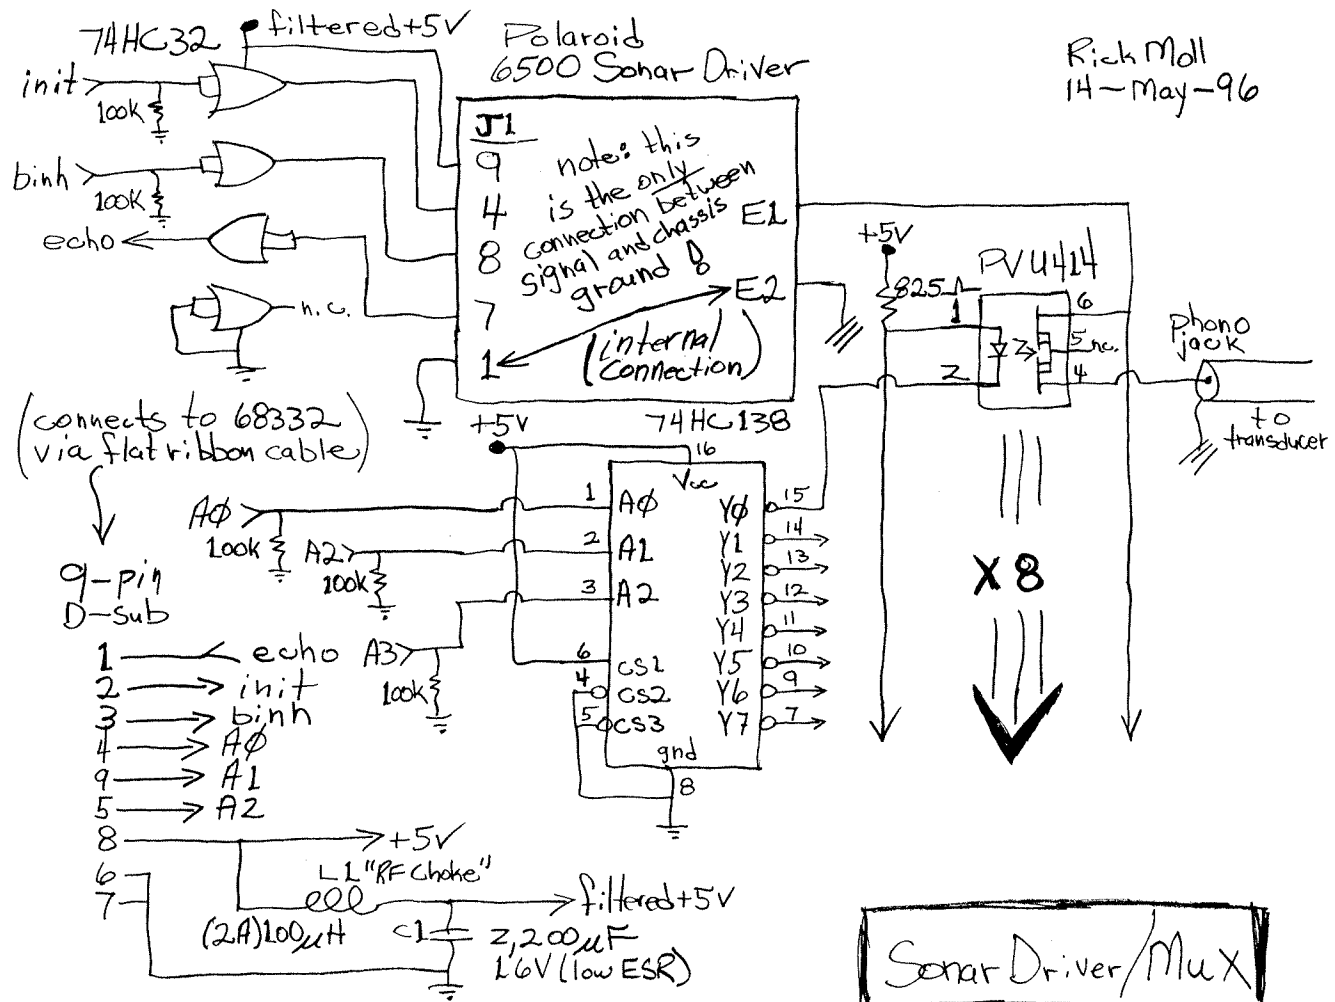 74HC32
filtered+5V
Polaroid
6500 Sonar Driver
Rick Moll
14-May-96
init
100K
binh
100K
echo
n.c.
J1
9
4
8
7
1
note: this
is the only
connection between
signal and chassis
ground !
E1
E2
(internal
connection)
+5V
825Ω
PVU414
1
2
6
5 n.c.
4
phono
jack
to
transducer
(connects to 68332
via flat ribbon cable)
+5V
74HC138
16
Vcc
AØ
100k
A2
100k
A3
100k
1 AØ
2 A1
3 A2
6 CS1
4 CS2
5 CS3
YØ 15
Y1 14
Y2 13
Y3 12
Y4 11
Y5 10
Y6 9
Y7 7
gnd
8
X 8
9-pin
D-sub
1 echo
2 init
3 binh
4 AØ
9 A1
5 A2
8 +5V
6
7
L1 "RF Choke"
(2A)100μH
filtered+5V
C1
2,200μF
16V (low ESR)
Sonar Driver/Mux